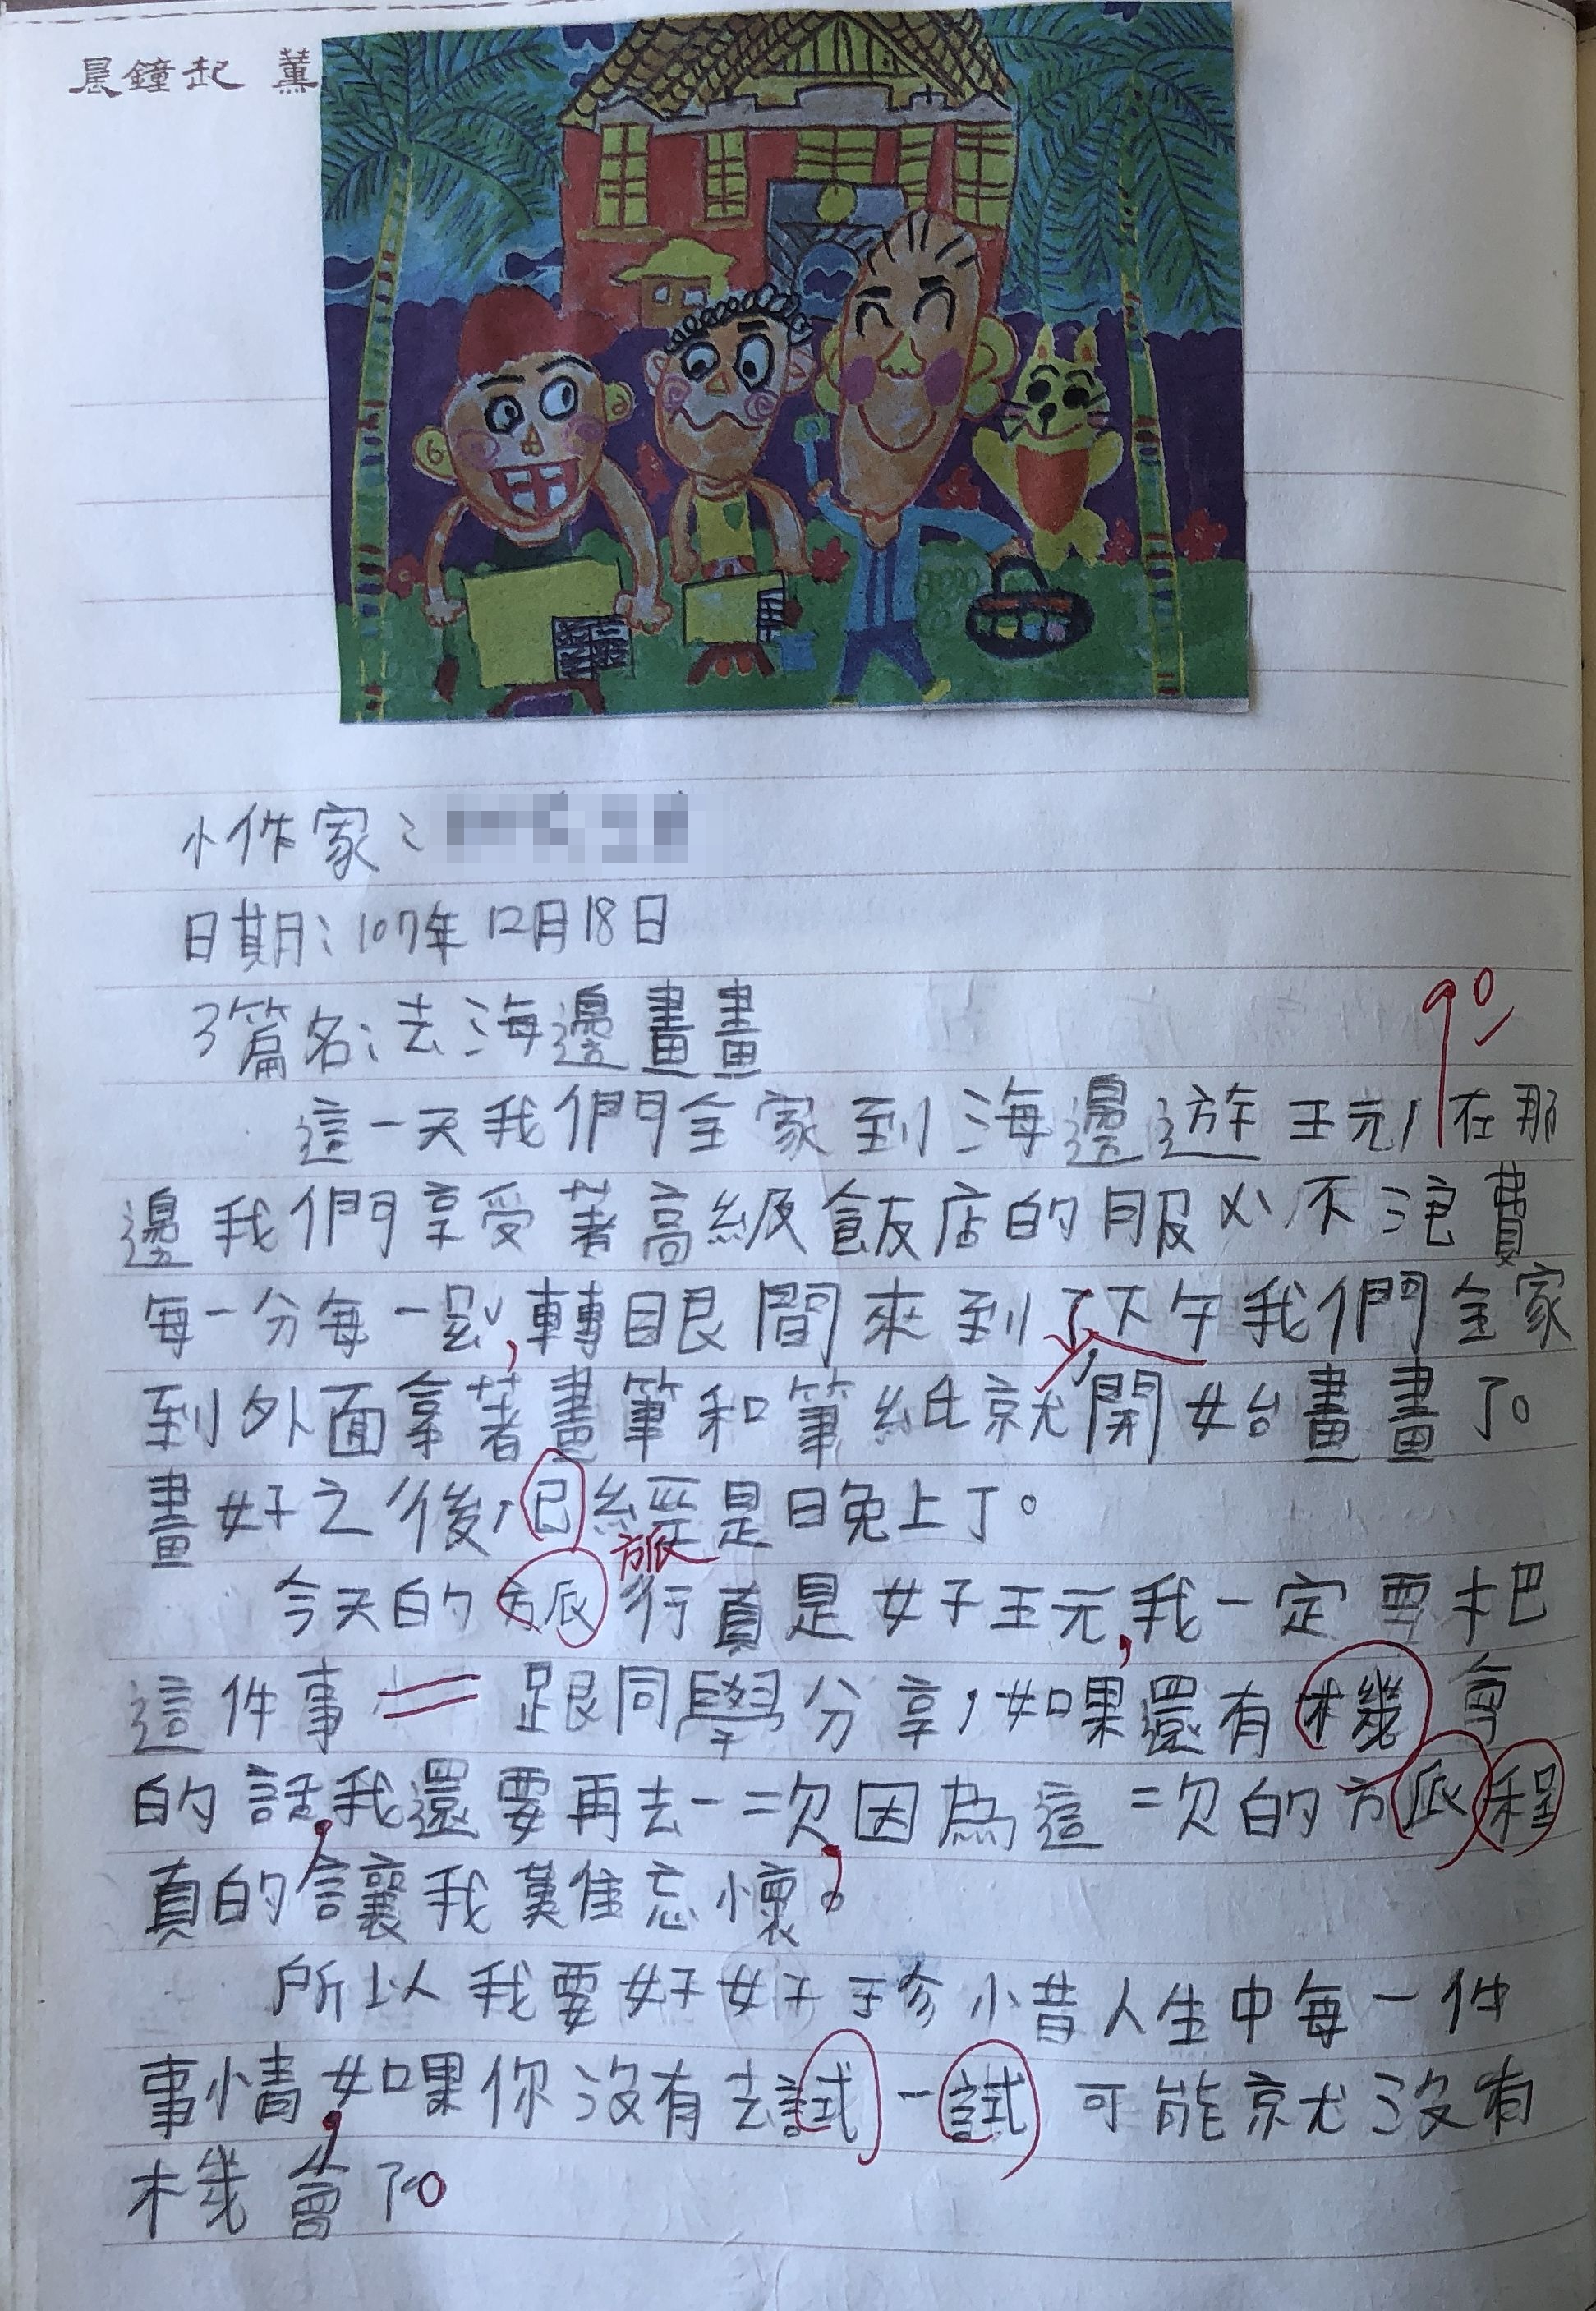 晨鐘起 薰
小作家：
日期：107年12月18日
篇名：去海邊畫畫
90
這一天我們全家到海邊遊玩，在那
邊我們享受著高級飯店的服必不浪費
每一分每一刻，轉眼間來到了下午我們全家
到外面拿著畫筆和筆紙就開始畫畫了。
畫好之後，已經是晚上了。
旅
今天的旅行真是好玩，我一定要把
這件事 跟同學分享，如果還有機會
的話，我還要再去一次，因為這次的旅程
真的會讓我難忘懷。
所以我要好好珍惜人生中每一件
事情，如果你沒有去試一試可能就沒有
機會了。